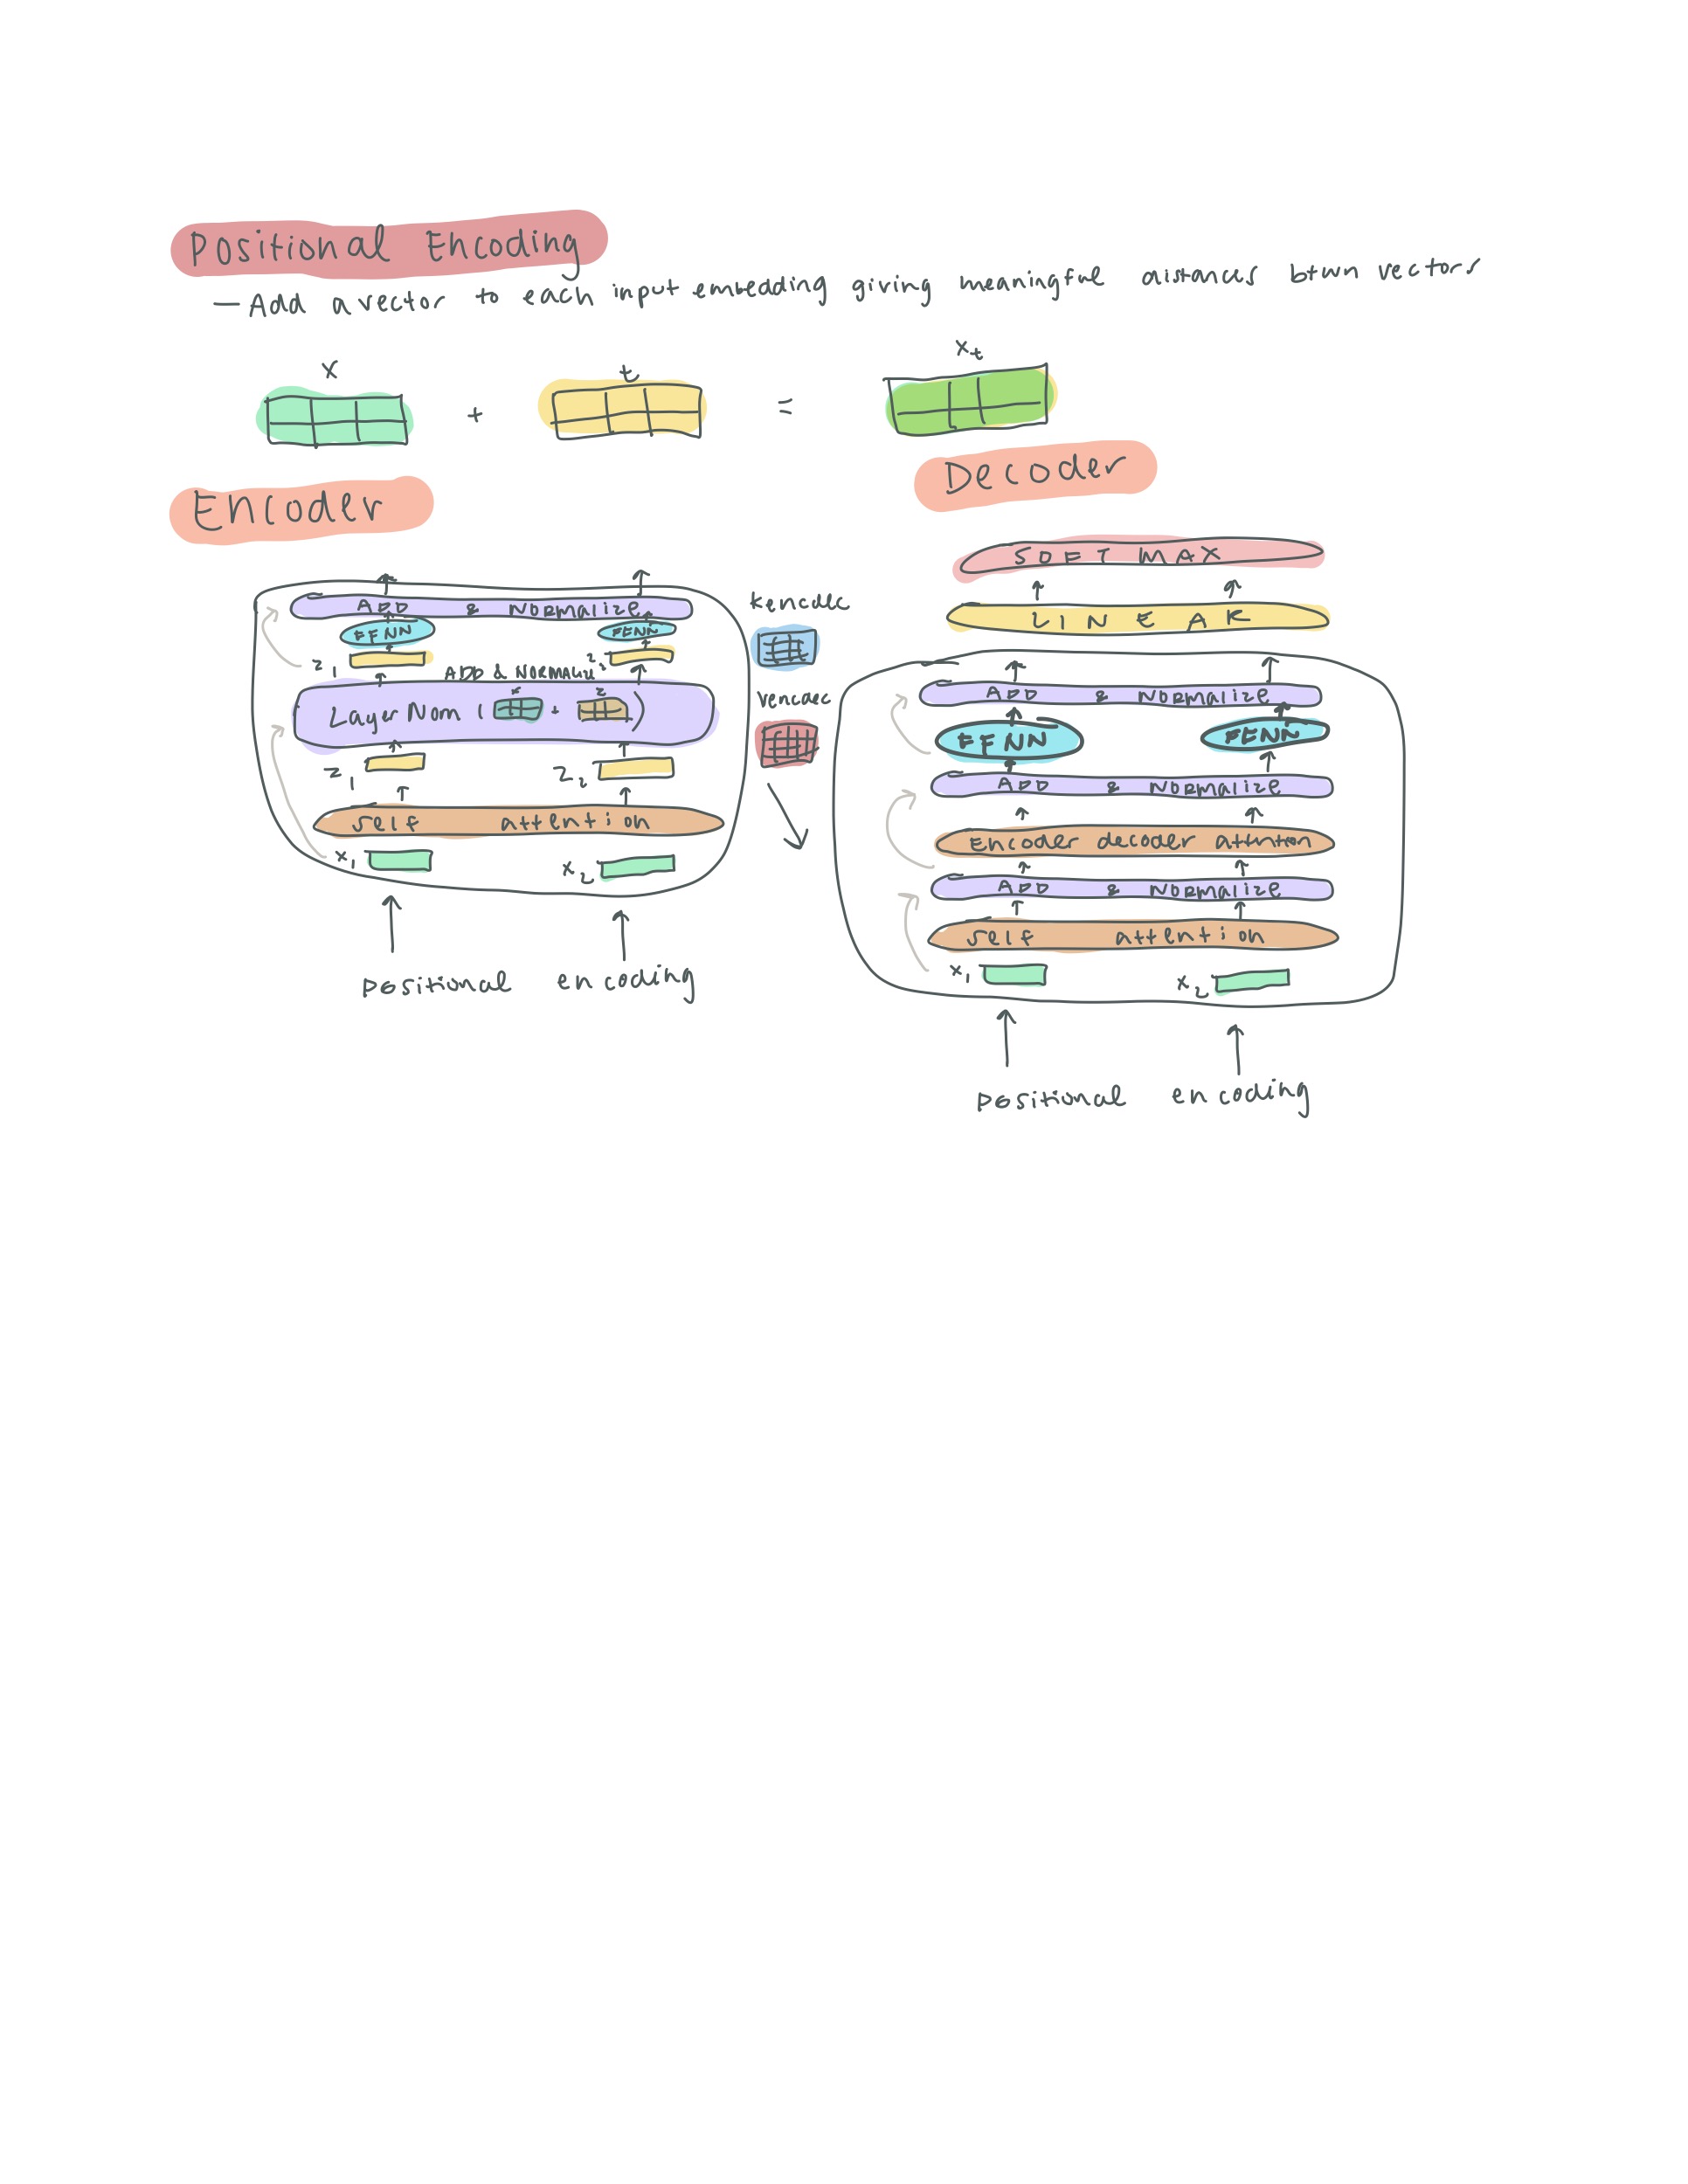 Positional Encoding
— Add a vector to each input embedding giving meaningful distances btwn vectors
x + t = xt
Encoder
ADD & NORMALIZE
FFNN FFNN
z1 z2
ADD & NORMALIZE
LayerNom ( x + z )
z1 z2
Self attention
x1 x2
Positional encoding
kencdec
vencdec
Decoder
SOFTMAX
LINEAR
ADD & NORMALIZE
FFNN FFNN
ADD & NORMALIZE
Encoder decoder attention
ADD & NORMALIZE
Self attention
x1 x2
Positional encoding